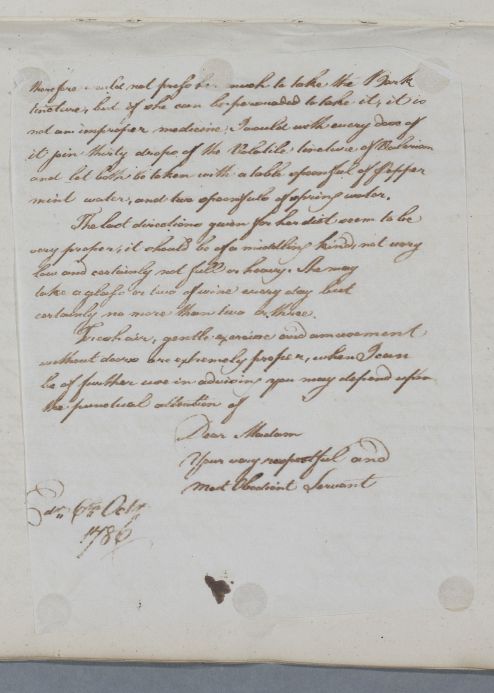 therefore would not press her much to take the Bark
tincture, but if she can be persuaded to take it, it is
not an improper medicine; I would with every dose of
it join thirty drops of the Volatile tincture of Valerian
and let both be taken with a table spoonful of Pepper
mint water, and two spoonfuls of spring water.
The last directions given for her diet seem to be
very proper; it should be of a middling kind, not very
low and certainly not full or heavy. She may
take a glass or two of wine every day but
certainly no more than two or three.
Fresh air, gentle exercise and amusement
without are extremely proper, when I can
be of further use in advising you may depend upon
the punctual attention of
Dear Madam
Your very respectful and
Most Obedient Servant
Edr. 6th Octr
1786